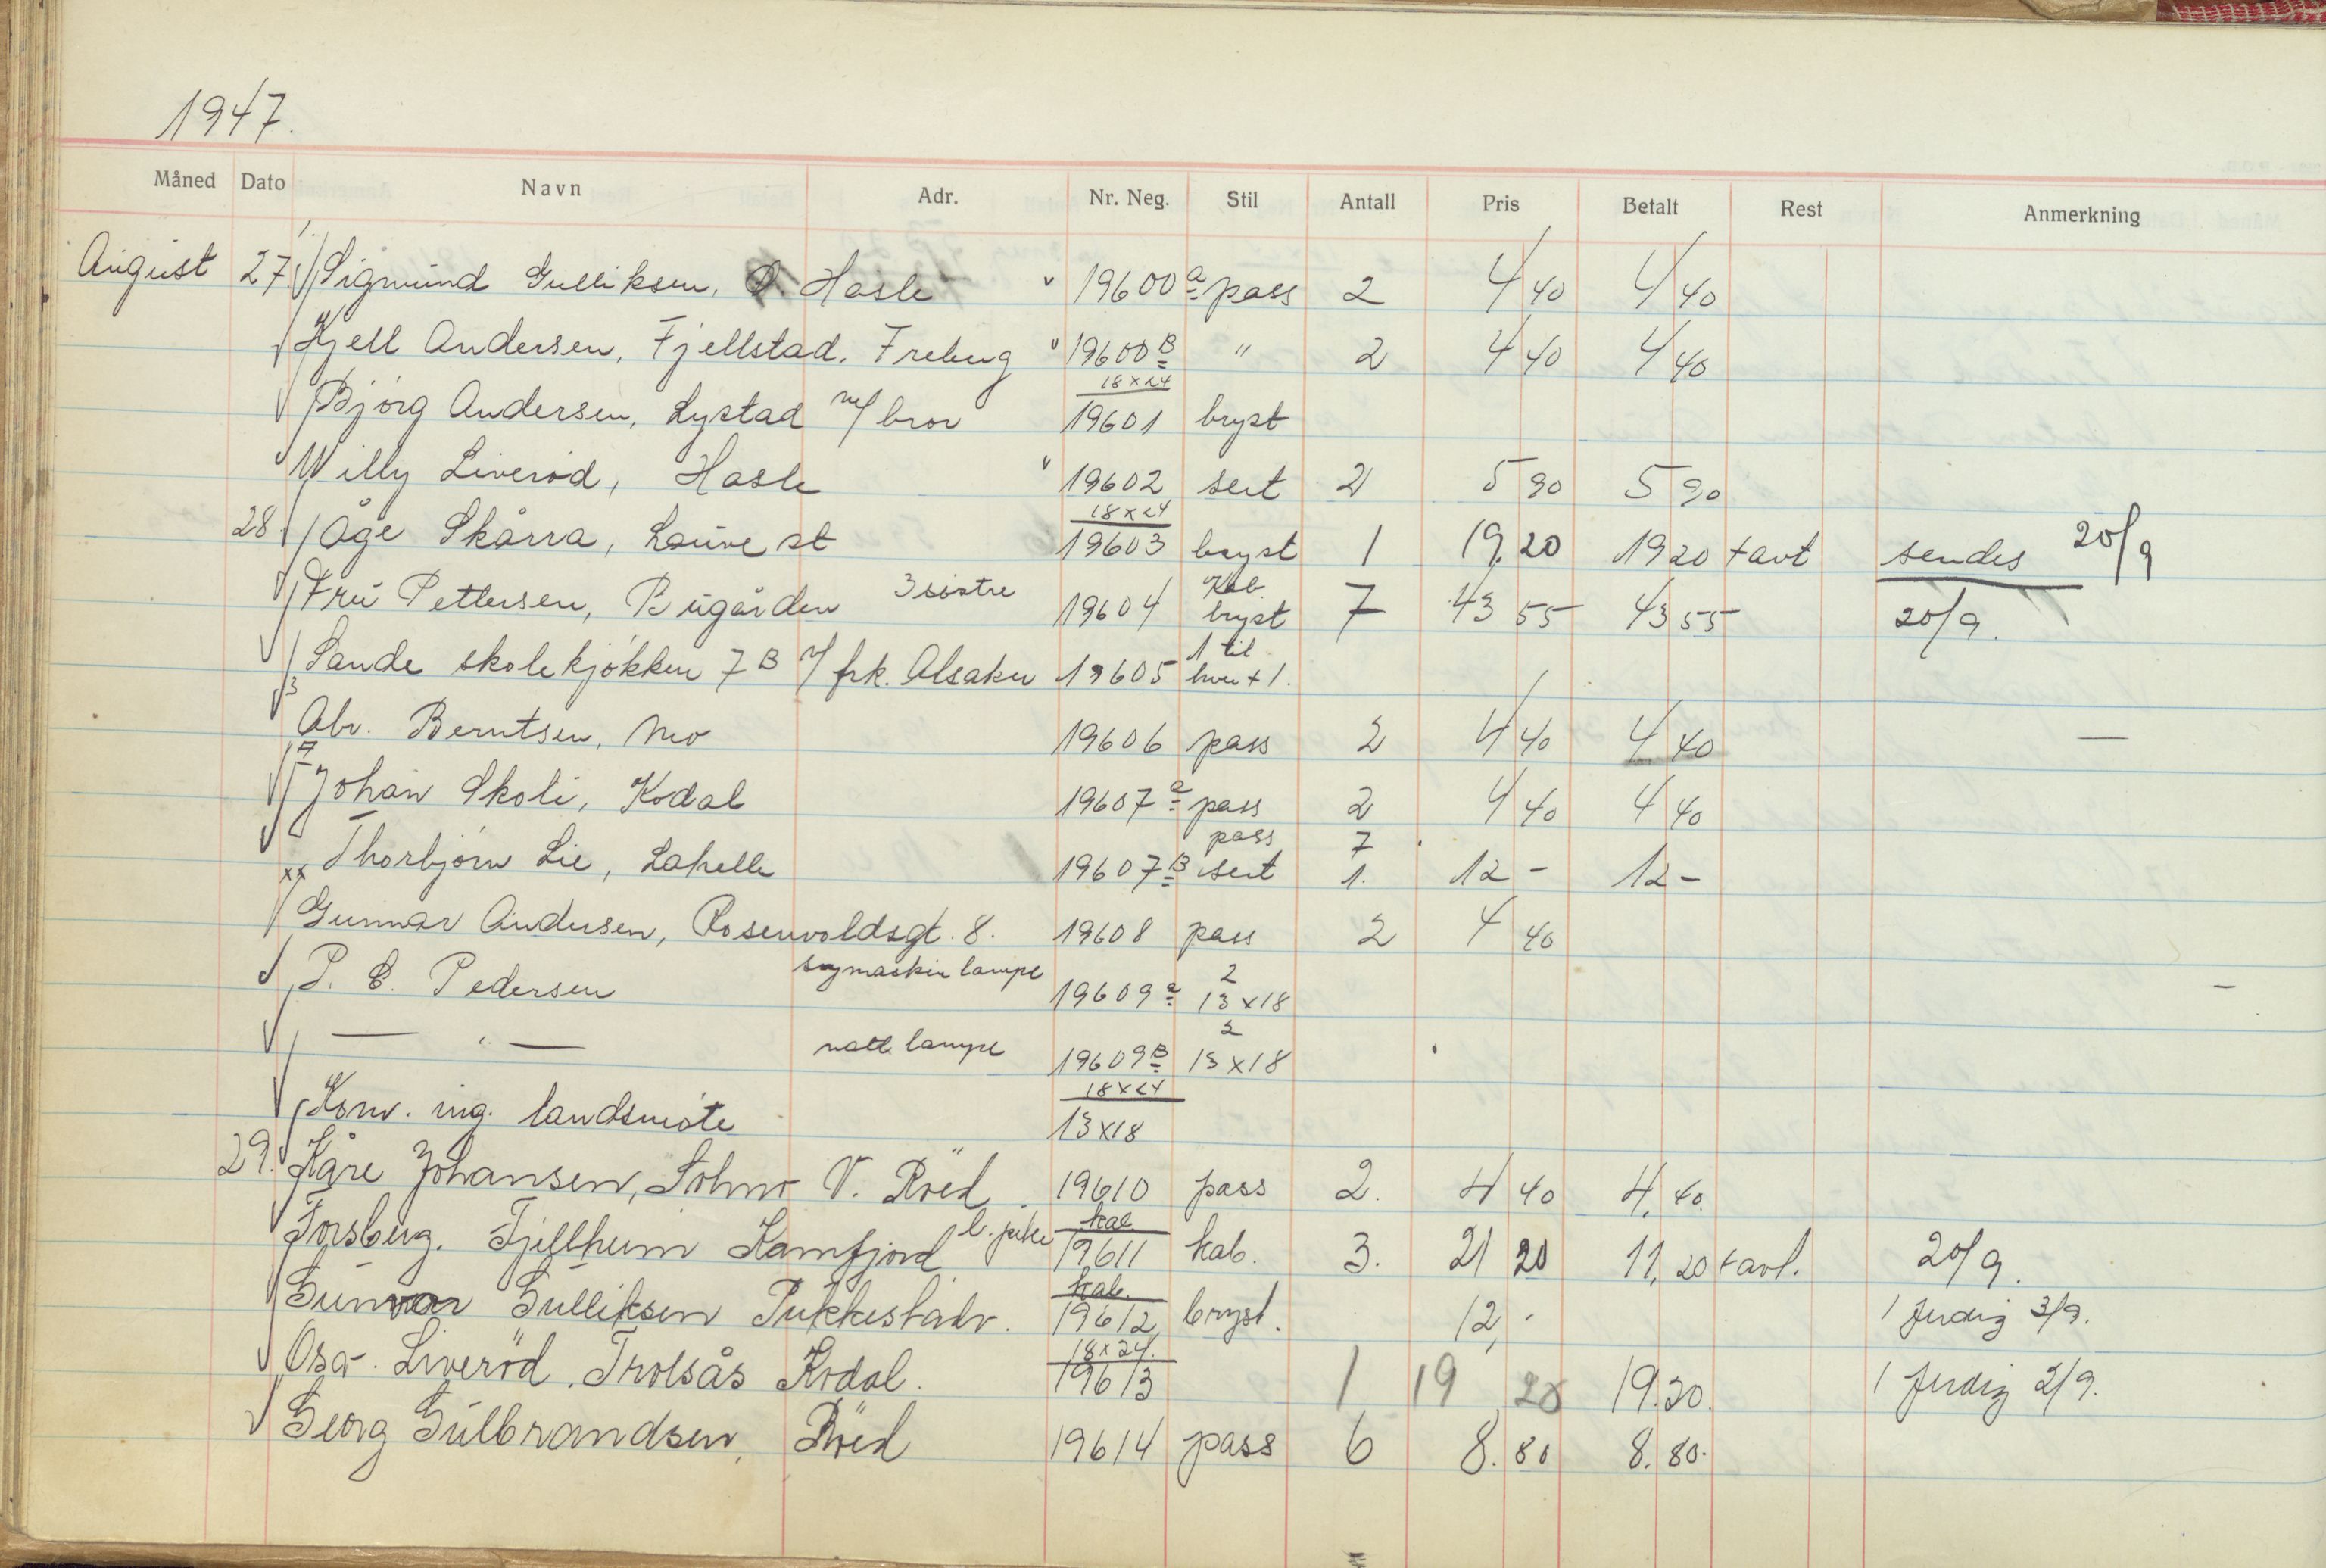 1947.
Måned Dato Navn Adr. Nr. Neg. Stil Antall Pris Betalt Rest Anmerkning
August 27. Sigmund Gulliksen, Hasle 19600 a pass 2 4 40 4 40
Kjell Andersen, Fjellstad, Freberg 19600 B " 2 4 40 4 40
18x24
Bjørg Andersen, Lystad m/ bror 19601 bryst
Willy Liverød, Hasle 19602 sert 2 5 90 5 90
18x24
28. Åge Skårra, Lauve st 19603 bryst 1 19,20 19 20 + avt sendes 20/9
Kab.
Fru Pettersen, Bugården 3 søstre 19604 bryst 7 43 55 43 55 20/9.
1 til
Sande skolekjøkken 7 B v/ frk. Alsaker 19605 hver + 1.
Abr. Berntsen, Mo 19606 pass 2 4 40 4 40 —
Johan Skoli, Kodal 19607 a pass 2 4 40 4 40
pass 7
Thorbjørn Lie, Lahelle 19607 B sert 1. 12 - 12 -
Gunnar Andersen, Rosenvoldsgt. 8. 19608 pass 2 4 40
2
P. C. Pedersen symaskin lampe 19609 a 13x18
2
— " — natt lampe 19609 B 13x18
18x24
Konv. ing. landsmøte 13x18
29. Kåre Johansen, V. Röed 19610 pass 2. 4 40 4, 40.
kab
Forsberg. Fjellheim Kamfjord b. pike 19611 kab. 3. 21 20 11, 20 + avt. 20/9.
kab.
Gunvor Gulliksen 19612 bryst. 12, - 1 ferdig 3/9.
18x24.
Osv. Liveröd, Trolsås Kodal. 19613 1 19 20 19.20. 1 ferdig 2/9.
Georg Gulbrandsen, Röed 19614 pass 6 8. 80 8. 80.